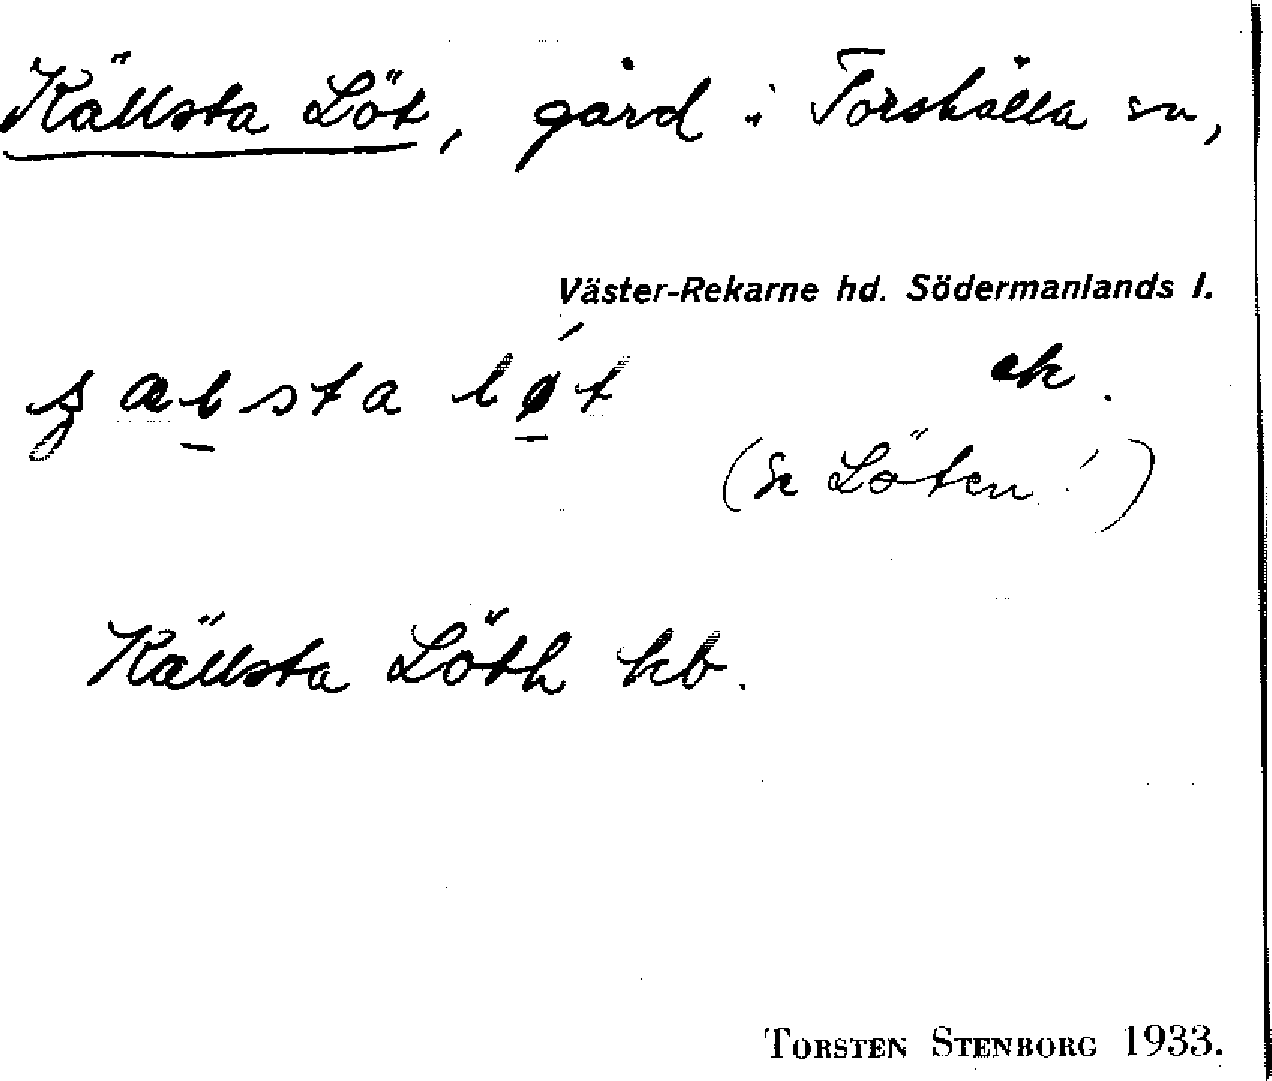 Källsta Löt, gård i Torshälla sn,
Väster-Rekarne hd. Södermanlands l.
sta løt ek.
(se Löten!)
Källsta Löth kb.
TORSTEN STENBORG 1933.